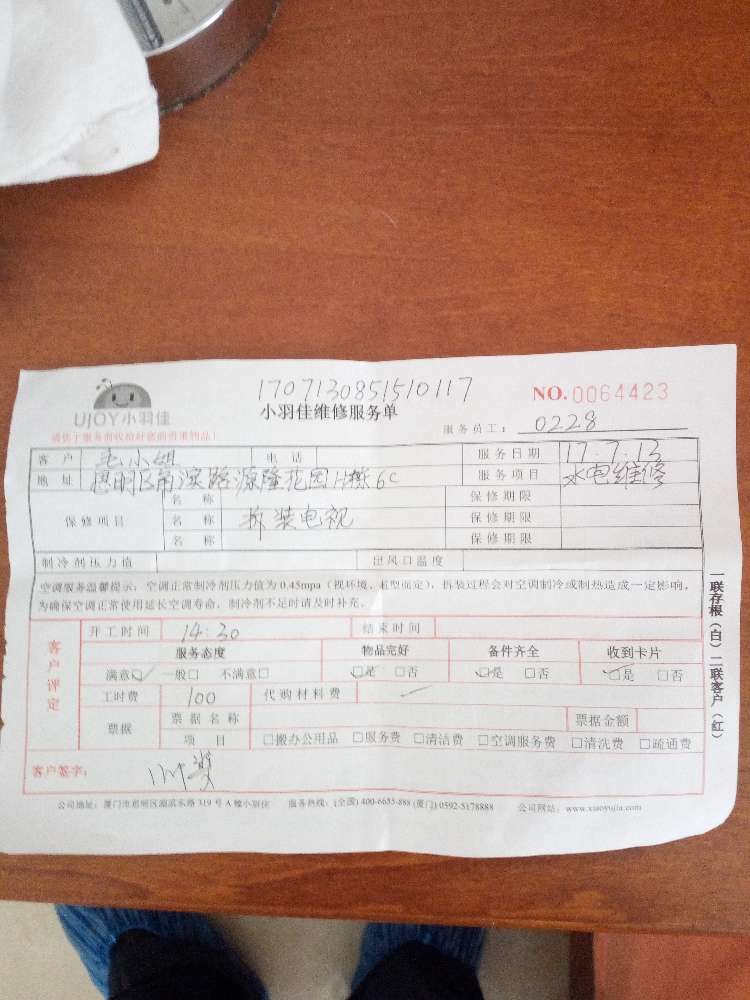 1707130851510117
NO.0064423
UJOY小羽佳
小羽佳维修服务单
服务员工： 0228
请您于服务前收拾好您的贵重物品！
客户 毛小姐 电话 服务日期 17.7.13
地址 思明区 源隆花园 6C 服务项目 水电维修
名称 保修期限
保修项目 名称 拆装电视 保修期限
名称 保修期限
制冷剂压力值 出风口温度
空调服务温馨提示：空调正常制冷剂压力值为0.45mpa（视环境、机型而定），拆装过程会对空调制冷或制热造成一定影响，
为确保空调正常使用延长空调寿命，制冷剂不足时请及时补充。
客户评定
开工时间 14:30 结束时间
服务态度 物品完好 备件齐全 收到卡片
满意□ 一般□ 不满意□ □是 □否 □是 □否 □是 □否
工时费 100 代购材料费
票据 票据名称 票据金额
项目 □搬办公用品 □服务费 □清洁费 □空调服务费 □清洗费 □疏通费
客户签字：
一联存根（白）二联客户（红）
公司地址：厦门市思明区 319号A幢小羽佳 服务热线：(全国) 400-6655-888 (厦门) 0592-5178888 公司网站：www.xiaoyujia.com